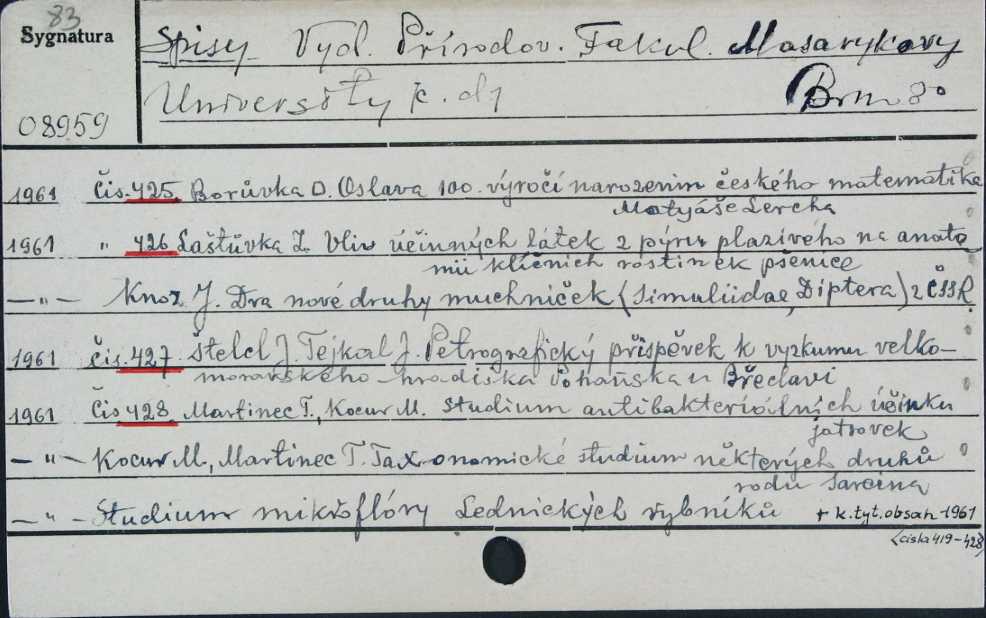 83
Sygnatura
Spisy Vyd. Přírodov. Fakul. Masarykovy
University k. d.
Brno 8°
08959
1961 Čis. 425. Borůvka O. Oslava 100. výročí narozenin českého matematika
Matyáše Lercha
1961 " 426 Laštůvka Z. Vliv účinných látek z pýru plazivého na anato
mii klíčních rostinek pšenice
— " — Knoz J. Dva nové druhy muchniček (Simuliidae, Diptera) z ČSSR
1961 čis. 427 Štelcl J. Tejkal J. Petrografický příspěvek k vyzkumu velko-
moravského hradiska Pohańska u Břeclavi
1961 čis 428 Martinec T., Kocur M. Studium antibakteriálních účinku
jatrovek
— " — Kocur M., Martinec T. Taxonomické studium některých druhů
rodu Sarcina
— " — Studium mikroflóry Lednických rybníků + k. tyt. obsah 1961
(čisla 419-428)